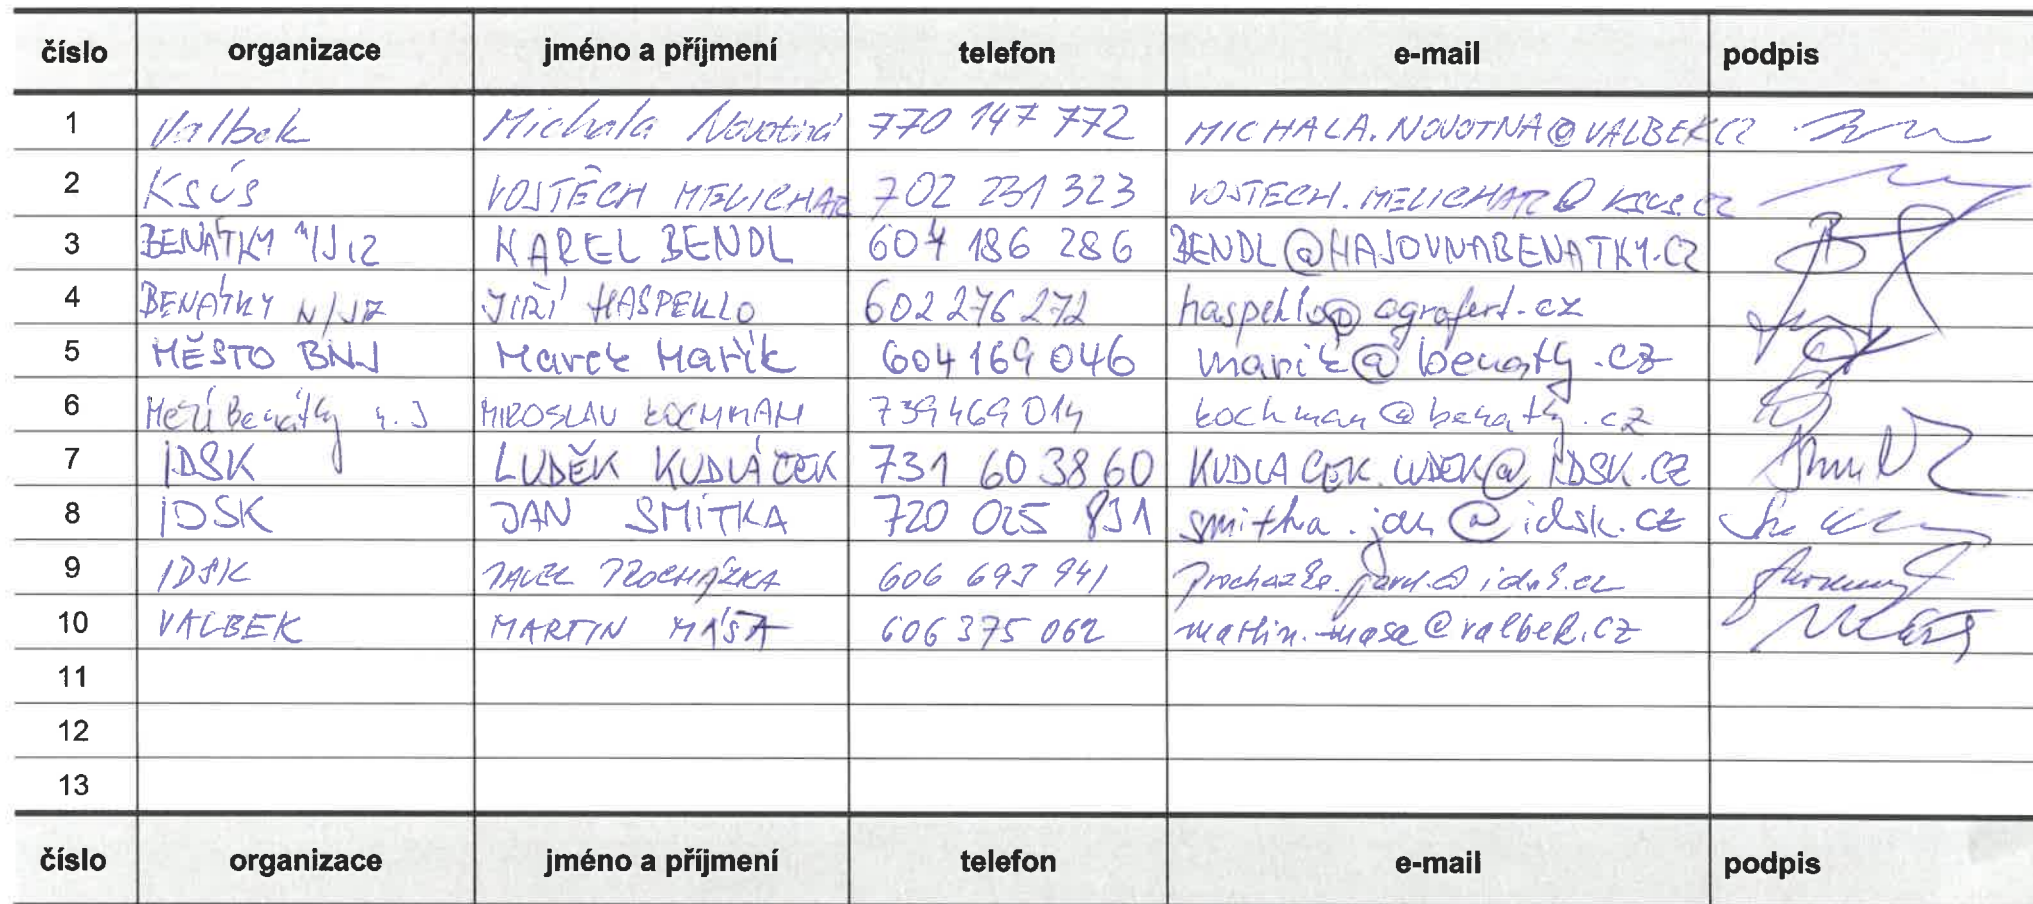 číslo organizace jméno a příjmení telefon e-mail podpis
1 Valbek Michala Novotná 770 147 772 MICHALA.NOVOTNA@VALBEK.CZ
2 KSÚS VOJTĚCH MELICHAR 702 231 323 VOJTECH.MELICHAR@KSUS.CZ
3 BENÁTKY KAREL BENDL 604 186 286 BENDL@HAJOVNABENATKY.CZ
4 BENÁTKY N/JIZ JIŘÍ HASPEKLO 602 276 272 haspeklo@agrofert.cz
5 MĚSTO BNJ Marek Mařík 604 169 046 marik@benatky.cz
6 Benátky n. J MIROSLAV KOCHMAN 739 469 014 kochman@benatky.cz
7 IDSK LUDĚK KUDLÁČEK 731 60 38 60 KUDLACEK.LUDEK@IDSK.CZ
8 IDSK JAN SMÍTKA 720 025 831 smitka.jan@idsk.cz
9 IDSK PAVEL PROCHÁZKA 606 693 941 prochazka.pavel@idsk.cz
10 VALBEK MARTIN MÁŠA 606 375 062 martin.masa@valbek.cz
11
12
13
číslo organizace jméno a příjmení telefon e-mail podpis